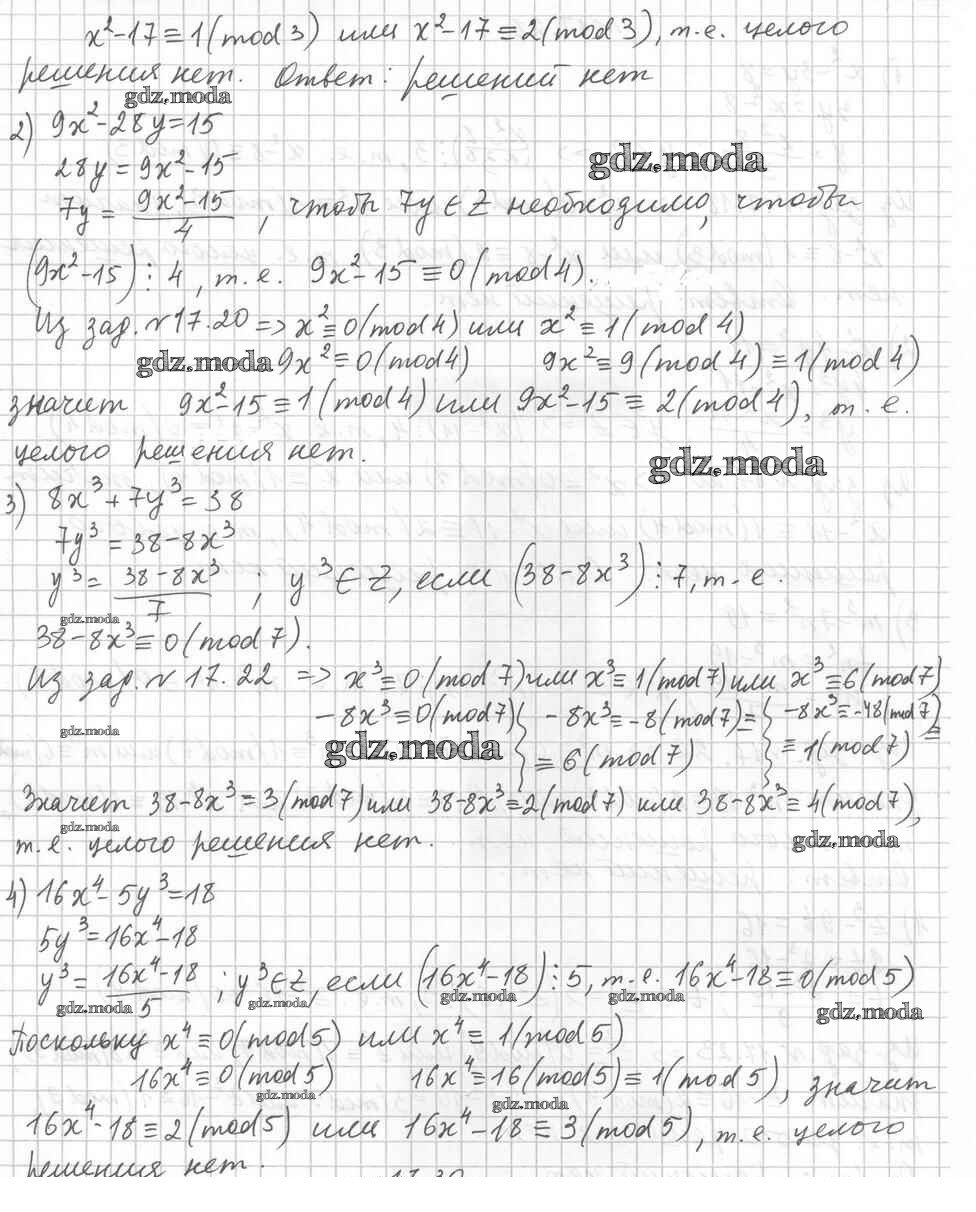 x²-17≡1(mod 3) или x²-17≡2(mod 3), т.е. целого
решения нет. Ответ: решений нет
gdz.moda
2) 9x²-28y=15
28y=9x²-15
gdz.moda
7y = (9x²-15)/4, чтобы 7y∈Z необходимо, чтобы
(9x²-15)⋮4, т.е. 9x²-15≡0(mod 4).
Из зад. №17.20 => x²≡0(mod 4) или x²≡1(mod 4)
gdz.moda 9x²≡0(mod 4) 9x²≡9(mod 4)≡1(mod 4)
значит 9x²-15≡1(mod 4) или 9x²-15≡2(mod 4), т.е.
целого решения нет.
gdz.moda
3) 8x³+7y³=38
7y³=38-8x³
y³= (38-8x³)/7; y³∈Z, если (38-8x³)⋮7, т.е.
gdz.moda
38-8x³≡0(mod 7).
Из зад. №17.22 => x³≡0(mod 7) или x³≡1(mod 7) или x³≡6(mod 7)
-8x³≡0(mod 7) { -8x³≡-8(mod 7)≡ { -8x³≡-48(mod 7)≡
gdz.moda
gdz.moda ≡6(mod 7) ≡1(mod 7)
Значит 38-8x³≡3(mod 7) или 38-8x³≡2(mod 7) или 38-8x³≡4(mod 7),
gdz.moda
т.е. целого решения нет.
gdz.moda
4) 16x⁴-5y³=18
5y³=16x⁴-18
y³= (16x⁴-18)/5; y³∈Z, если (16x⁴-18)⋮5, т.е. 16x⁴-18≡0(mod 5)
gdz.moda gdz.moda gdz.moda gdz.moda gdz.moda
Поскольку x⁴≡0(mod 5) или x⁴≡1(mod 5)
16x⁴≡0(mod 5) 16x⁴≡16(mod 5)≡1(mod 5), значит
gdz.moda gdz.moda
16x⁴-18≡2(mod 5) или 16x⁴-18≡3(mod 5), т.е. целого
решения нет.